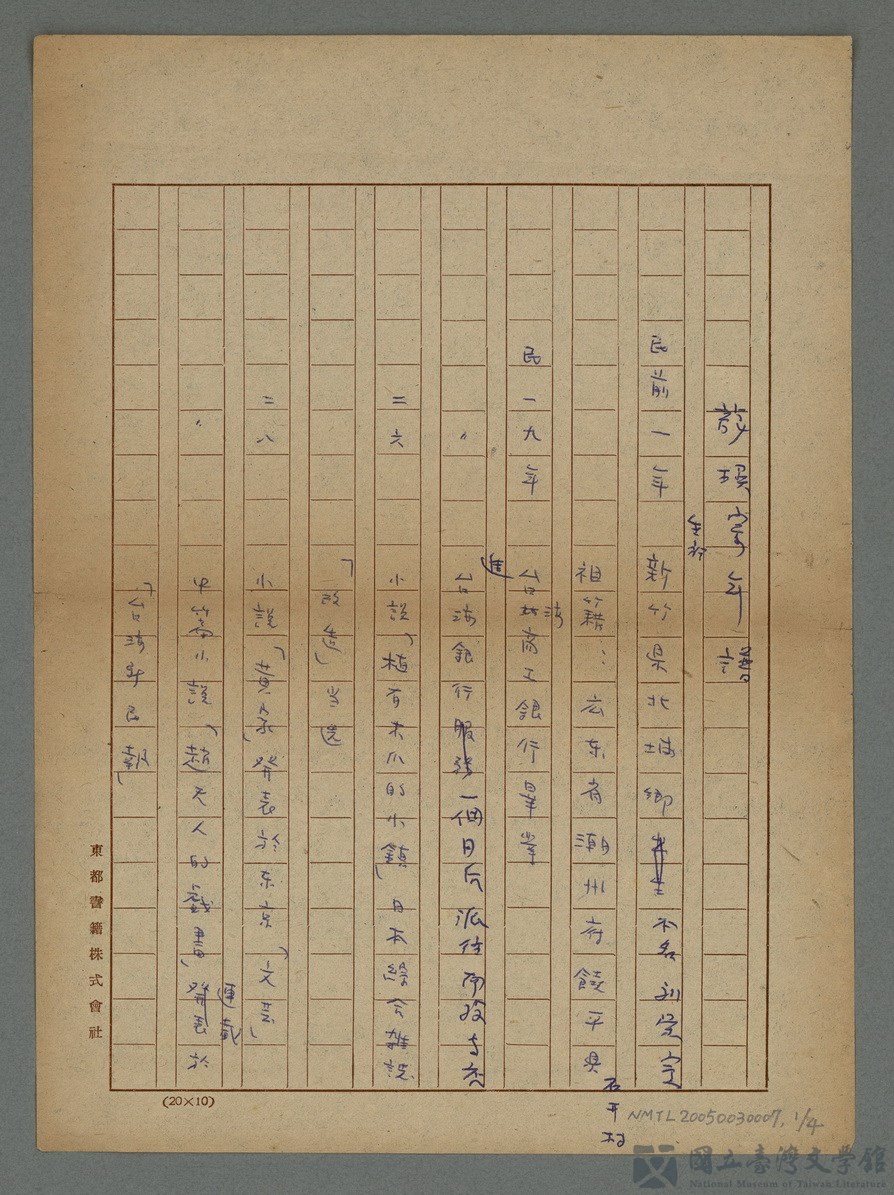 龍瑛宗年譜
民前一年 新竹県北埔鄉生 本名刘栄宗
祖籍：広东省潮州府饒平県石井村
民一九年 台湾商工銀行畢業
〃 進台湾銀行服務一個月后派往南投支店
二六 小説「植有木瓜的小鎮」日本綜合雑誌
「改造」当选
二八 小説「黄家」発表於东京「文芸」
〃 中篇小説「趙夫人的戯畫」連載於
「台湾新民報」
東都書籍株式會社
(20×10)
NMTL20050030007, 1/4
國立臺灣文學館
National Museum of Taiwan Literature